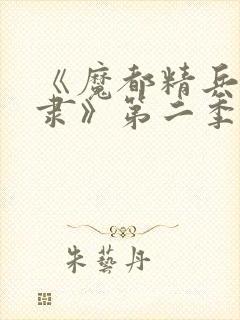 《魔都精兵
隶》第二季
朱藝丹